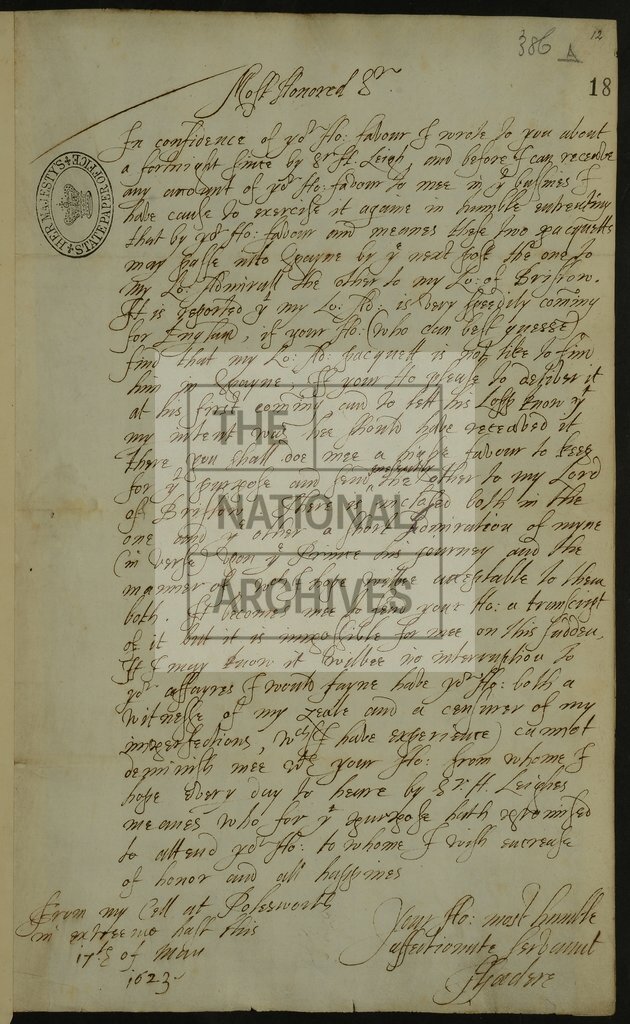 386 A
12
18
Most Honored Sr.
HER MAJESTY'S STATE PAPER OFFICE
In confidence of yor Ho: favour I wrote to you about
a fortnight since by Sr. H. Leigh, and before I can receave
any amount of yor Ho: favour to mee in yt busines I
have cause to exercise it againe in humble entreating
that by yor Ho: favour and meanes these two pacquetts
may passe into Spayne by ye next post the one to
my Lo: Admirall the other to my Lo: of Bristow.
It is reported yt my Lo: Ad: is very speedily coming
for England, if your Ho: (who can best guesse)
find that my Lo: Ad: pacquett is not like to find
him in Spayne, If your Ho please to deliver it
at his first coming and to lett his Lopp know yt
my intent was hee should have receaved it
there you shall doe mee a huge favour to keep
for yt purpose and send presently the other to my Lord
of Bristow. There is inclosed both in the
one and ye other a short of myne
(in verse) upon ye Prince his journey and the
manner of it wch I hope wilbee acceptable to them
both. It becomes mee to send your Ho: a transcript
of it but it is impossible for mee on this sudden,
If I may know it wilbee no interruption to
yor affayres I would fayne have yor Ho: both a
witnesse of my zeale and a censurer of my
imperfections, wch (I have experience) cannot
deminish mee wth your Ho: from whome I
hope every day to heare by Sr. H. Leighes
meanes who for yt purpose hath promised
to attend yor Ho: to whome I wish encrease
of honor and all happines
From my Cell at Polesworth
in extreeme hast this
17th of May
1623
Your Ho: most humble
affectionate servant
THE
NATIONAL
ARCHIVES